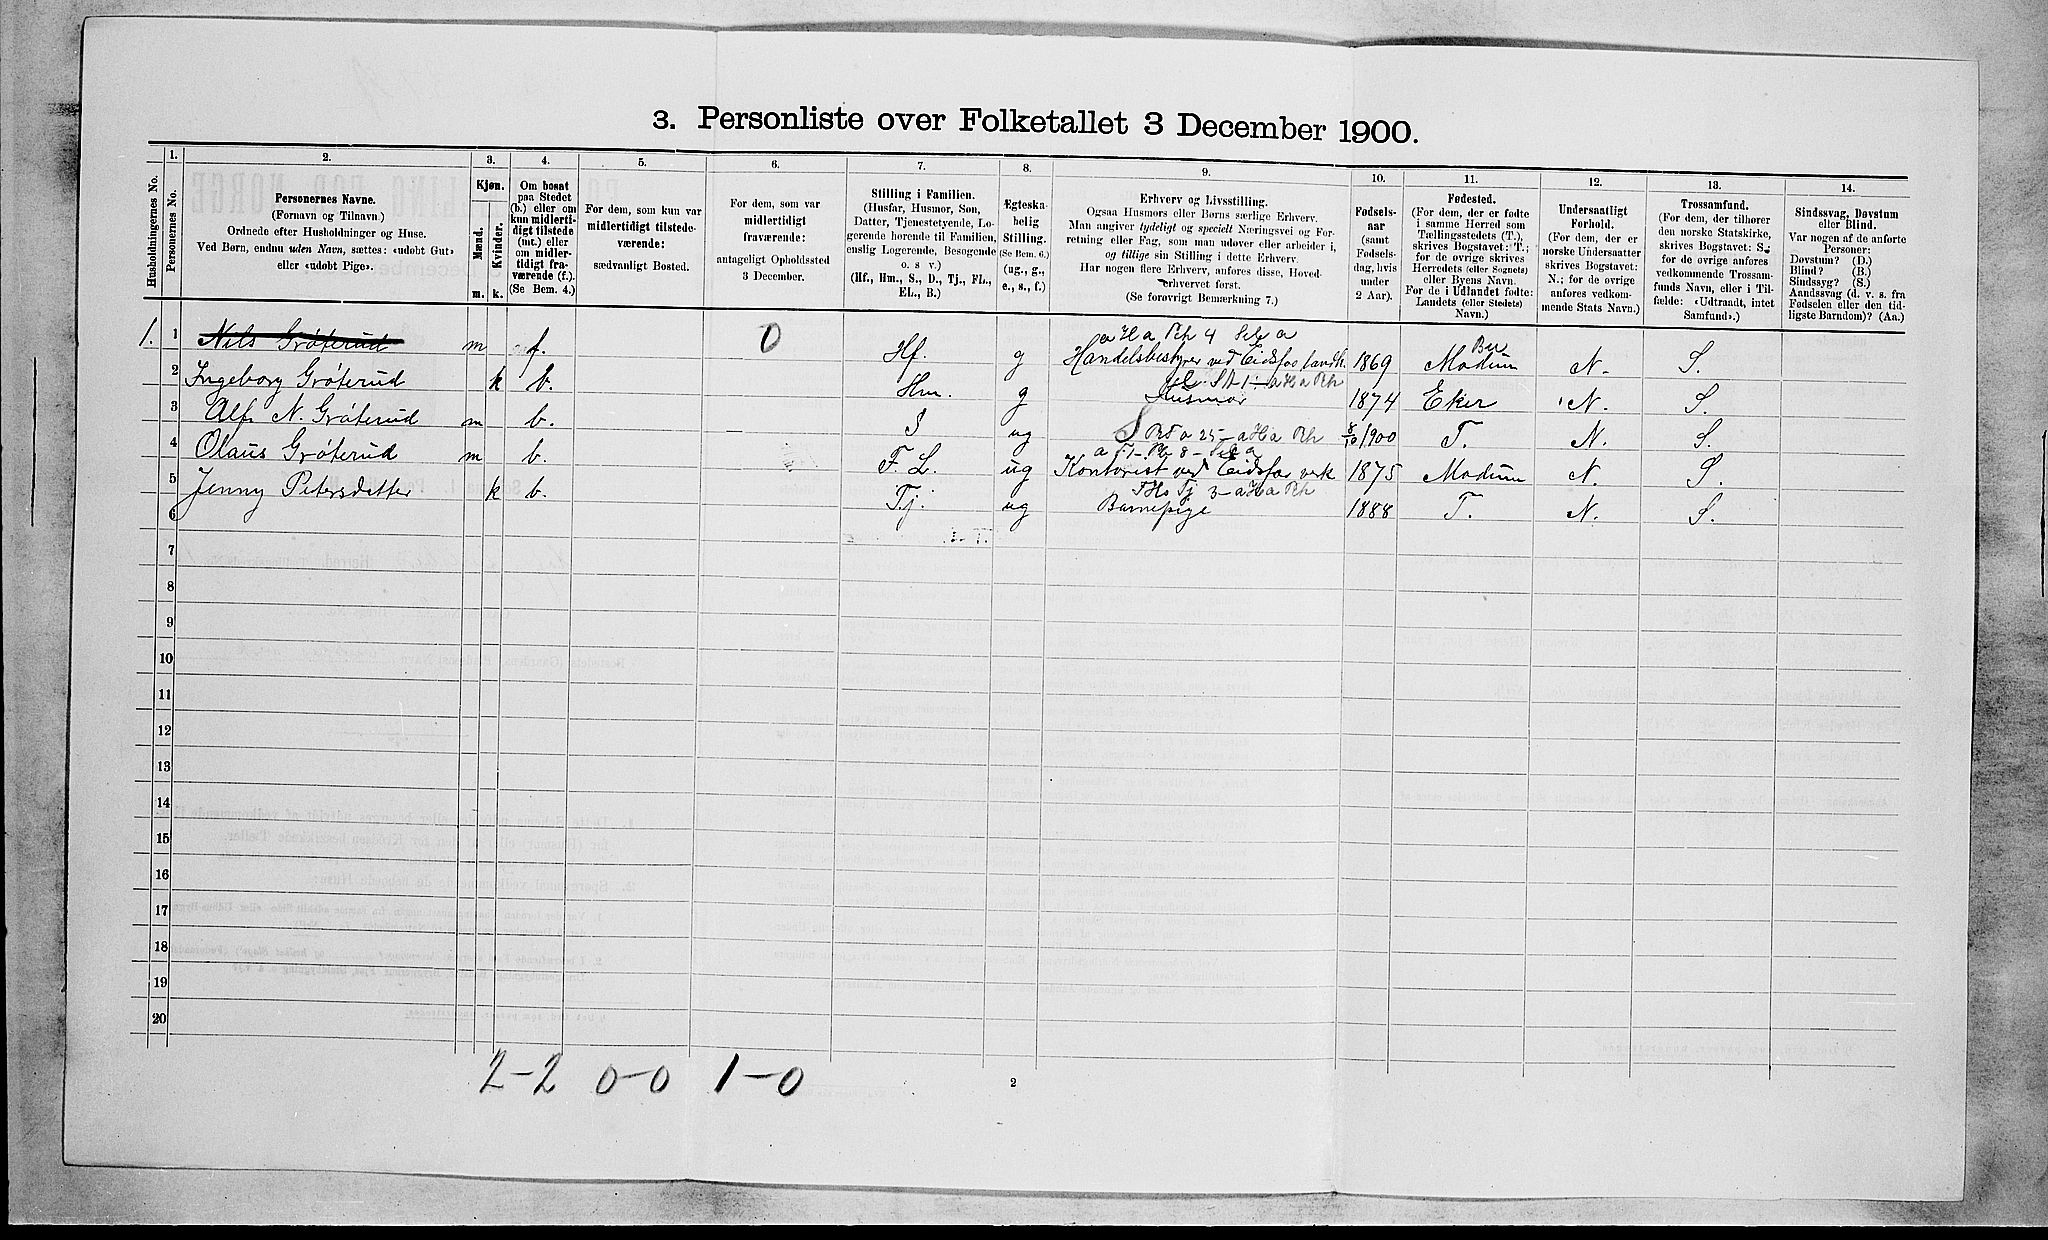 3. Personliste over Folketallet 3 December 1900.
1. 2. 3. 4. 5. 6. 7. 8. 9. 10. 11. 12. 13. 14.
Husholdningernes No.
Personernes No.
Personernes Navne.
(Fornavn og Tilnavn.)
Ordnede efter Husholdninger og Huse.
Ved Børn, endnu uden Navn, sættes: «udøbt Gut»
eller «udøbt Pige».
Kjøn.
Mænd.
Kvinder.
m. k.
Om bosat
paa Stedet
(b.) eller om
kun midlerti-
digt tilstede
(mt.) eller
om midler-
tidigt fra-
værende (f.).
(Se Bem. 4.)
For dem, som kun var
midlertidigt tilstede-
værende:
sædvanligt Bosted.
For dem, som var
midlertidigt
fraværende:
antageligt Opholdssted
3 December.
Stilling i Familien.
(Husfar, Husmor, Søn,
Datter, Tjenestetyende, Lo-
gerende hørende til Familien,
enslig Logerende, Besøgende
o. s v.)
(Hf., Hm., S., D., Tj., FL.,
EL., B.)
Ægteska-
belig
Stilling.
(Se Bem. 6.)
(ug., g.,
e., s., f.)
Erhverv og Livsstilling.
Ogsaa Husmors eller Børns særlige Erhverv.
Man angiver tydeligt og specielt Næringsvei og For-
retning eller Fag, som man udøver eller arbeider i,
og tillige sin Stilling i dette Erhverv.
Har nogen flere Erhverv, anføres disse, Hoved-
erhvervet først.
(Se forøvrigt Bemærkning 7.)
Fødsels-
aar
(samt
Fødsels-
dag, hvis
under
2 Aar).
Fødested.
(For dem, der er fødte
i samme Herred som
Tællingsstedets (T.),
skrives Bogstavet: T.;
for de øvrige skrives
Herredets (eller Sognets)
eller Byens Navn.
For de i Udlandet fødte:
Landets (eller Stedets)
Navn.)
Undersaatligt
Forhold.
(For dem, der er
norske Undersaatter
skrives Bogstavet:
N.; for de øvrige
anføres vedkom-
mende Stats Navn.)
Trossamfund.
(For dem, der tilhører
den norske Statskirke,
skrives Bogstavet: S.;
for de øvrige anføres
vedkommende Trossam-
funds Navn, eller i Til-
fælde: «Udtraadt, intet
Samfund».)
Sindssvag, Døvstum
eller Blind.
Var nogen af de anførte
Personer:
Døvstum? (D.)
Blind? (B.)
Sindssyg? (S.)
Aandssvag (d. v. s. fra
Fødselen eller den tid-
ligste Barndom)? (Aa.)
1. 1 Nils Grøterud m f. 0 Hf. g Handelsbestyrer ved Eidsfos landh. 1869 Modum Bu N. S.
2 Ingeborg Grøterud k b. Hm. g Husmor 1874 Eker N. S.
3 Alf N. Grøterud m b. S ug 8/10 1900 T. N. S.
4 Olaus Grøterud m b. F. L. ug Kontorist ved Eidsfos verk 1875 Modum N. S.
5 Jenny Petersdatter k b. Tj. ug Barnepige 1888 T. N. S.
6
7
8
9
10
11
12
13
14
15
16
17
18
19
20
2-2 0-0 1-0
2